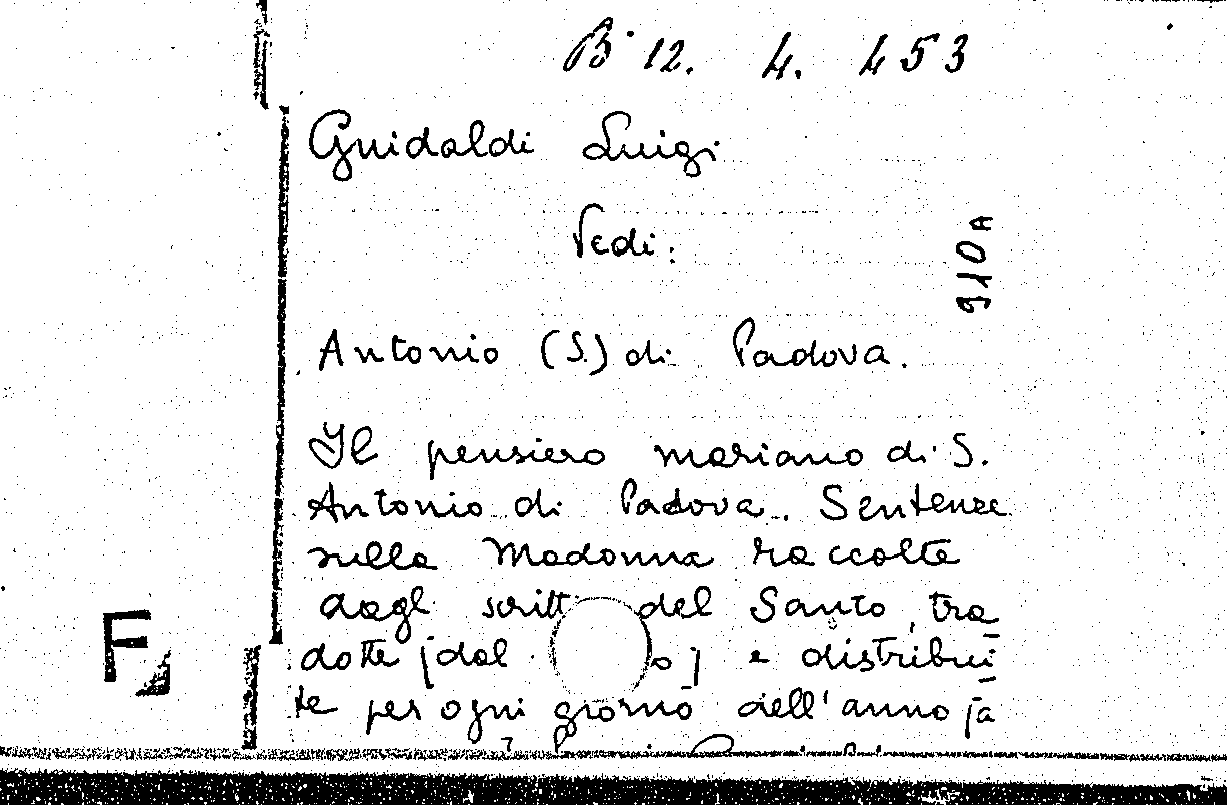 B 12. 4. 453
Guidaldi Luigi
Vedi:
910A
Antonio (S.) di Padova.
Il pensiero mariano di S.
Antonio di Padova. Sentenze
sulla Madonna raccolte
dagl scritti del Santo, tra
dotte [dal o] e distribui
te per ogni giorno dell'anno [a
F